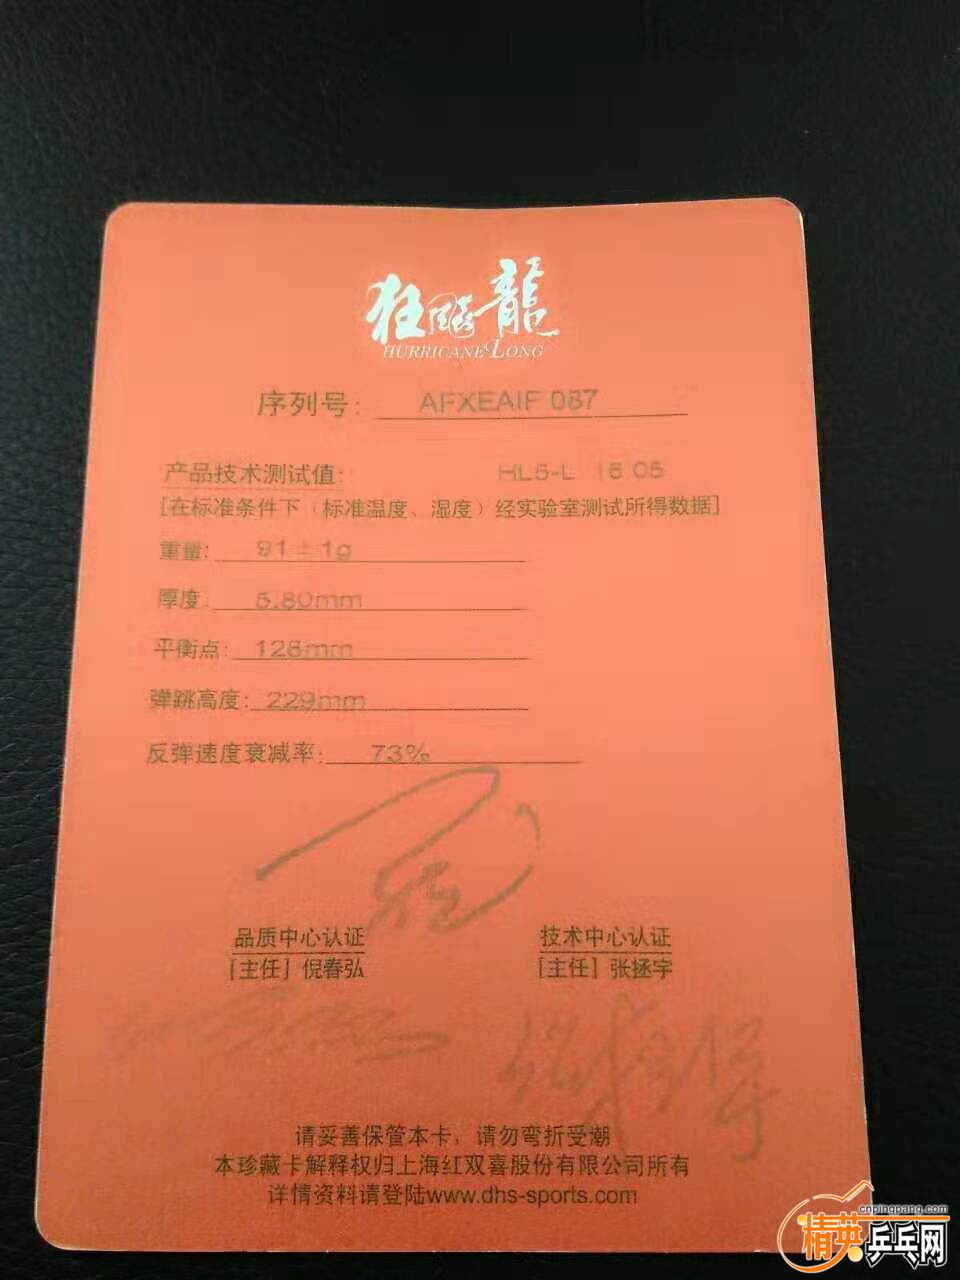 狂飚龍
HURRICANE LONG
序列号: AFXEAIF 087
产品技术测试值: HL5-L 16 05
[在标准条件下（标准温度、湿度）经实验室测试所得数据]
重量: 91±1g
厚度: 5.80mm
平衡点: 128mm
弹跳高度: 229mm
反弹速度衰减率: 73%
品质中心认证 技术中心认证
[主任] 倪春弘 [主任] 张拯宇
请妥善保管本卡，请勿弯折受潮
本珍藏卡解释权归上海红双喜股份有限公司所有
详情资料请登陆www.dhs-sports.com
cnpingpang.com
精英乒乓网